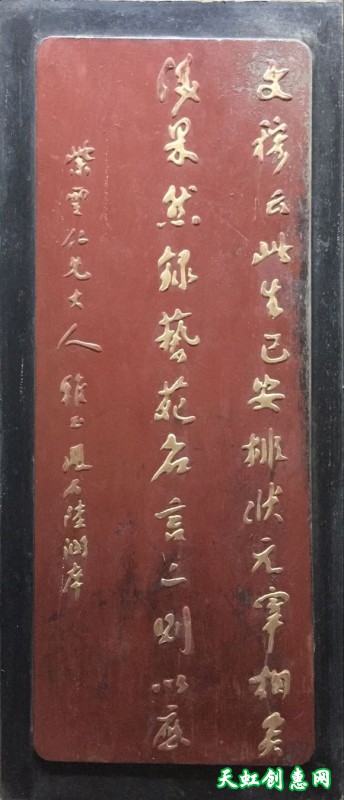 文穆云此生已安排狀元宰相矣
後果然録藝苑名言二則以應
紫雲仁兄大人 雅正 鳳石陸潤庠
天虹创惠网